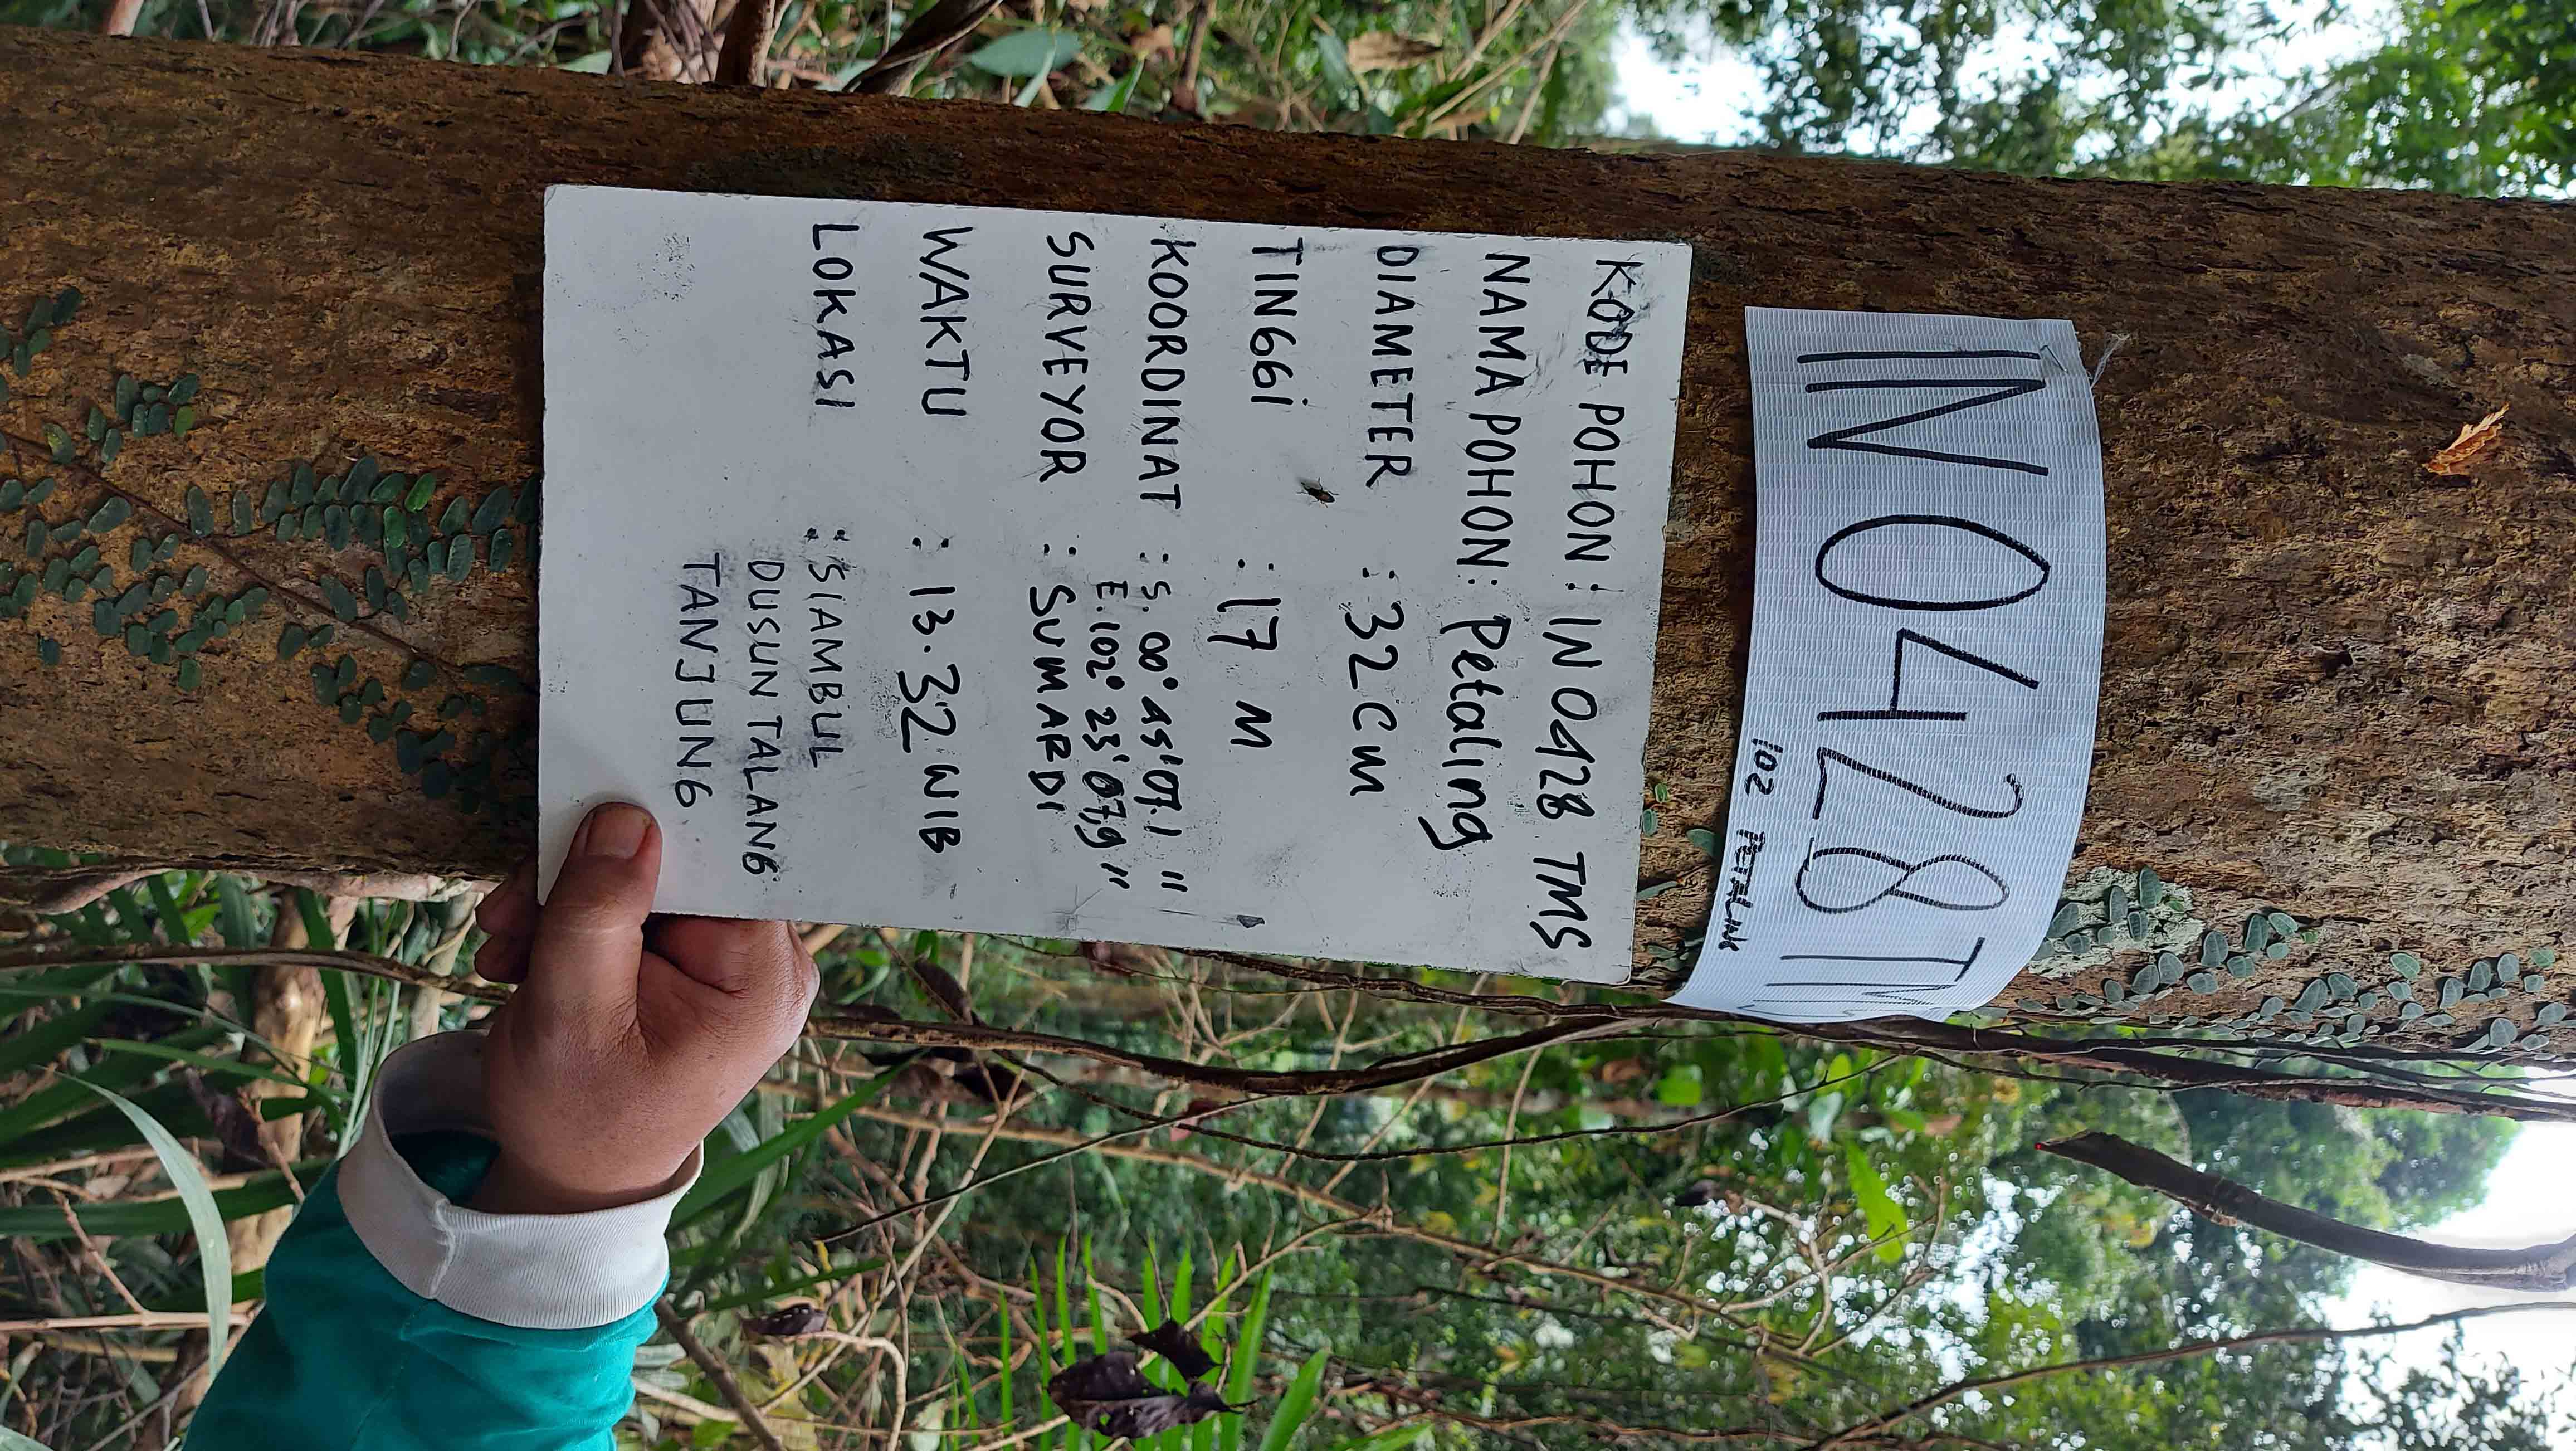 IN 0428 TMS
102 PETALING
KODE POHON : IN 0428 TMS
NAMA POHON : Petaling
DIAMETER : 32 Cm
TINGGi : 17 M
KOORDINAT : S. 00° 45' 07.1 "
E. 102° 23' 07,9 "
SURVEYOR : SUMARDI
WAKTU : 13.32 WIB
LOKASI : SIAMBUL
DUSUN TALANG
TANJUNG